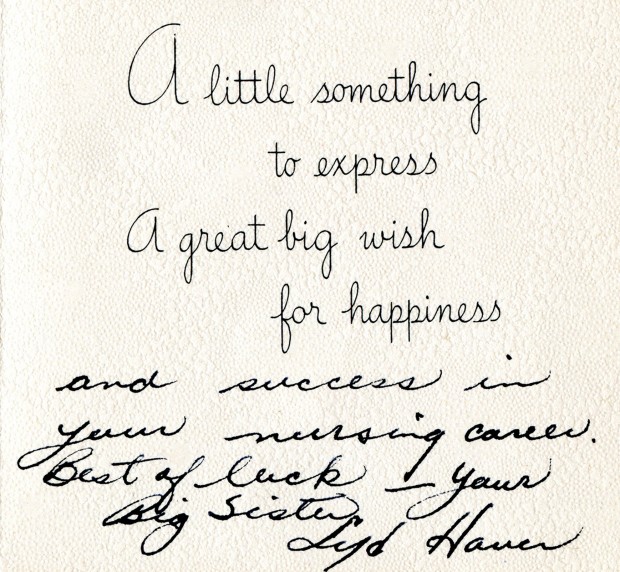 A little something
to express
A great big wish
for happiness
and success in
your nursing career.
Best of luck – your
Big Sister
Lyd Haver